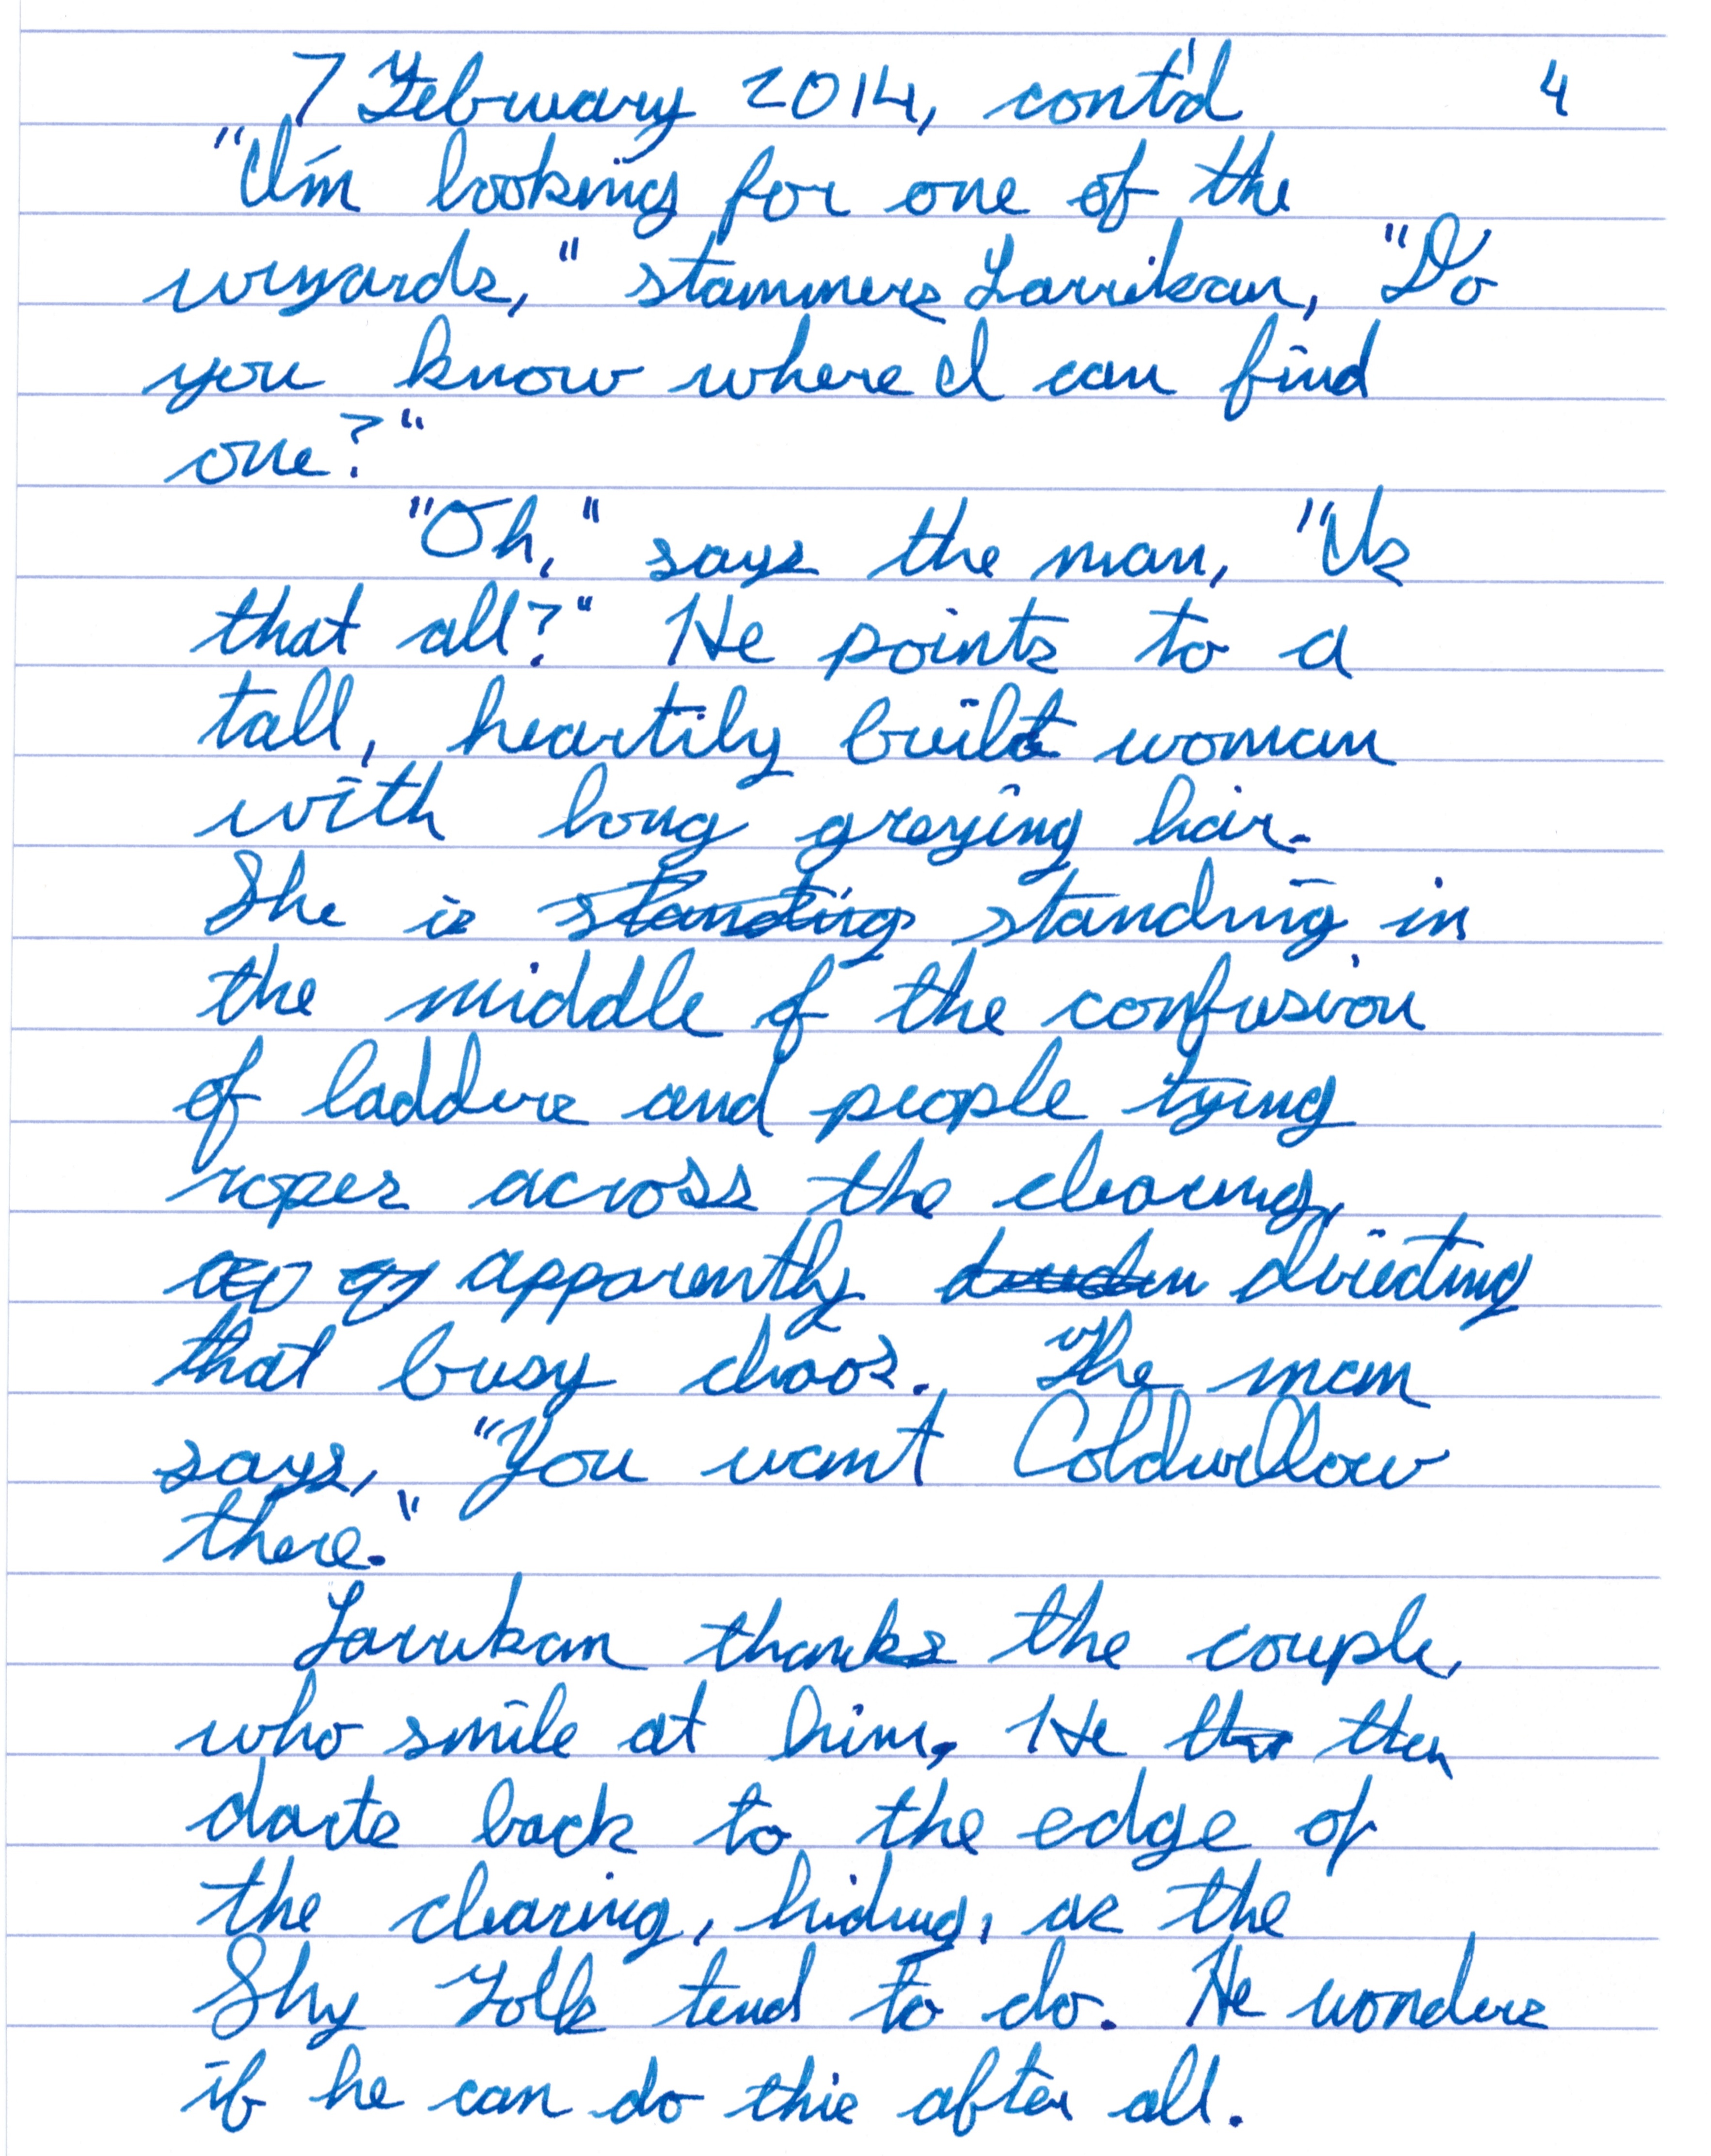 7 February 2014, cont'd 4
"I'm looking for one of the
wizards," stammers Larrikan, "Do
you know where I can find
one?"
"Oh," says the man, "Is
that all?" He points to a
tall, heartily built woman
with long greying hair.
She is standing standing in
the middle of the confusion
of ladders and people tying
ropes across the clearing,
apparently directing
that busy chaos. The man
says, "You want Coldwillow
there."
Larrikan thanks the couple,
who smile at him. He then
darts back to the edge of
the clearing, hiding, as the
Shy Folk tend to do. He wonders
if he can do this after all.